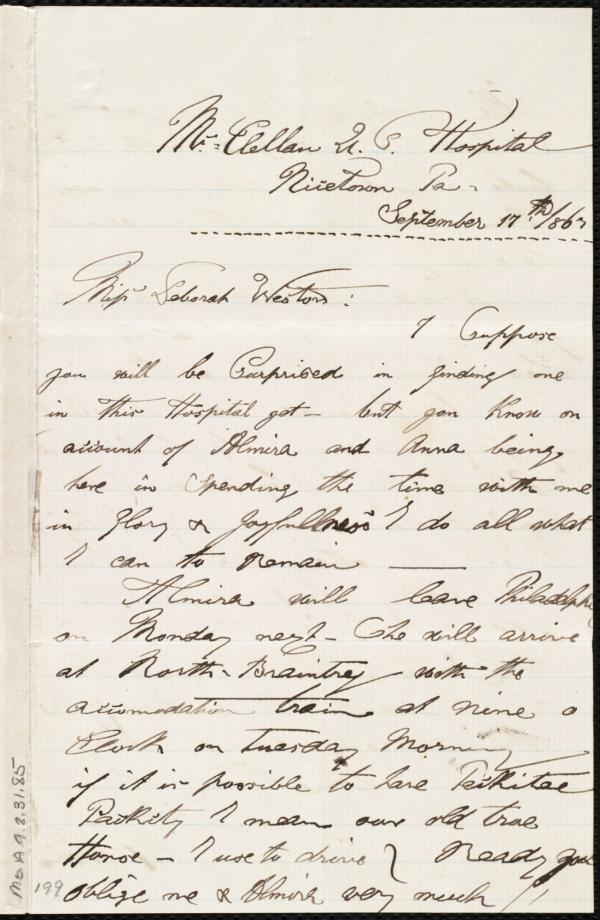 Mc=Clellan U. S. Hospital
Nicetown Pa.
September 17th /863
Miss Deborah Weston:
I Suppose
you will be Surprised in finding me
in this Hospital yet - but you know on
account of Almira and Anna being
here in Spending the time with me
in Glory & Joyfullness I do all what
I can to remain
Almira will leave Philadelphia
on Monday next - She will arrive
at North-Braintrey with the
accomodation train at nine o
Clock on Tuesday Morning
if it is possible to have
I mean our old true
Horse - I use to drive } Ready you
oblige me & Almira very much //
Ms A 9.2.31.85
199